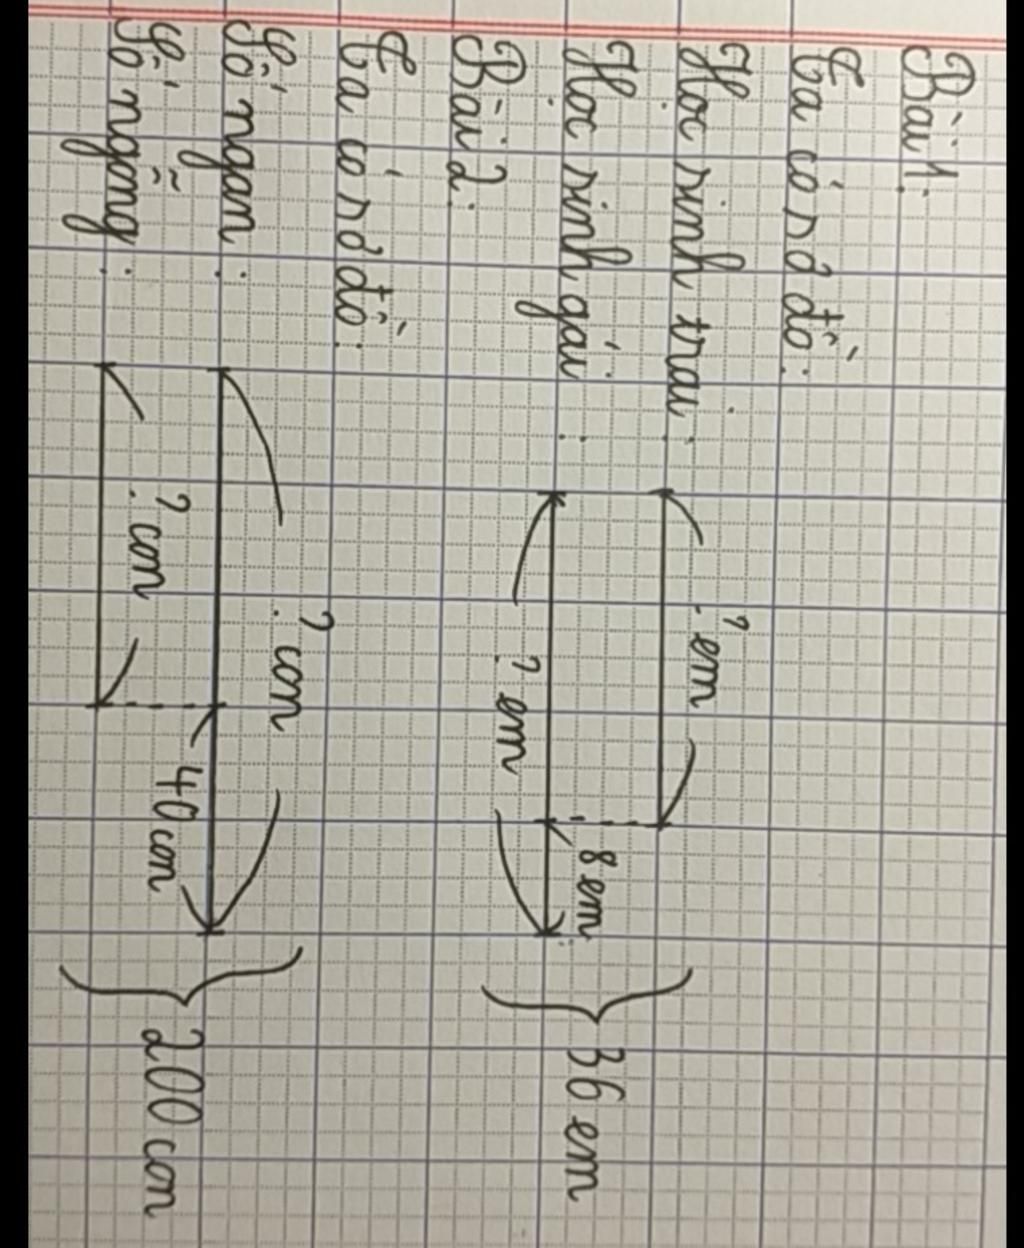 Bài 1:
Ta có sơ đồ:
? em
Học sinh trai:
8 em
36 em
Học sinh gái:
? em
Bài 2:
Ta có sơ đồ:
? con
Số ngan:
40 con
200 con
? con
Số ngỗng: